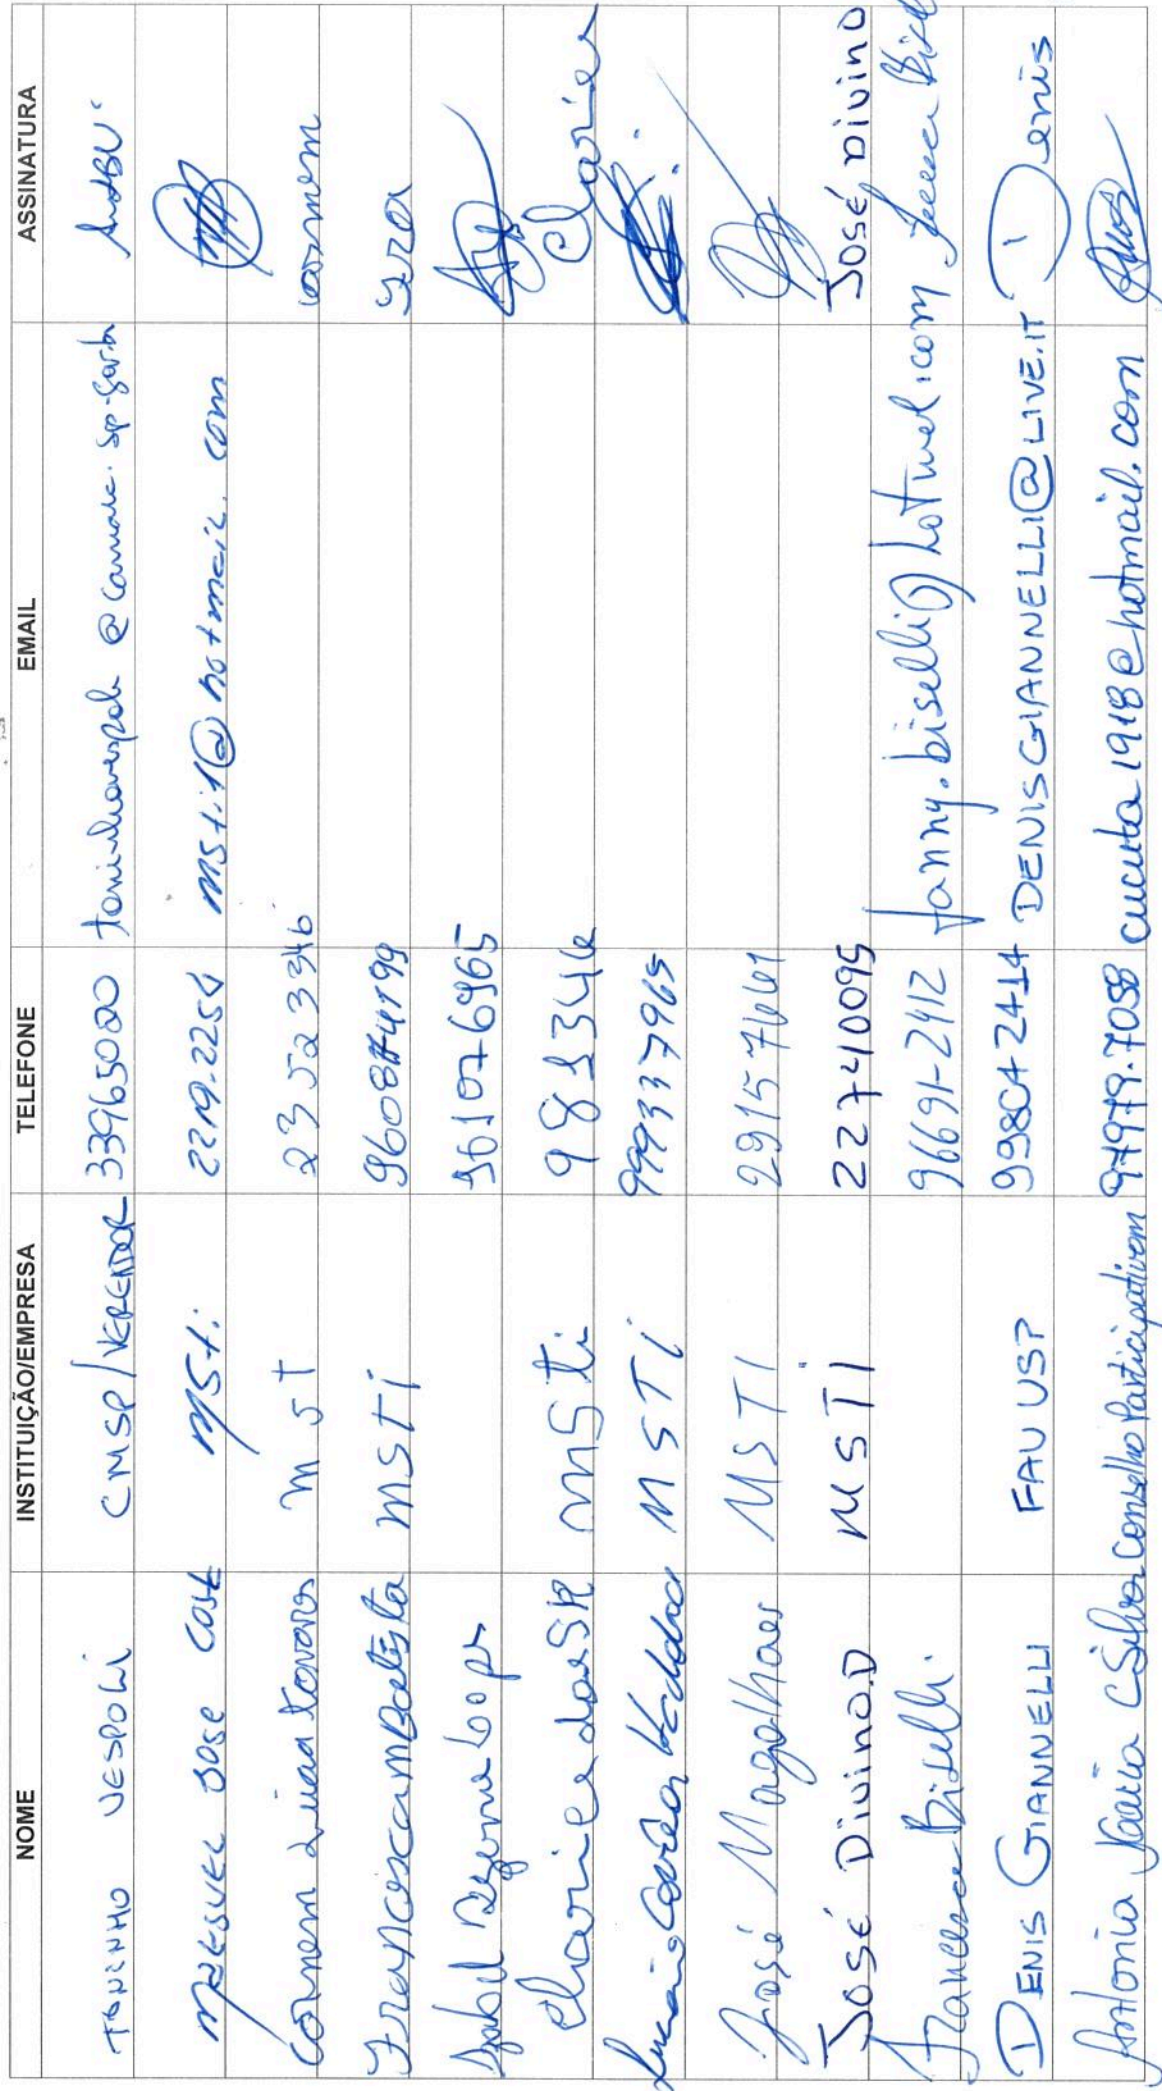 NOME INSTITUIÇÃO/EMPRESA TELEFONE EMAIL ASSINATURA
TONINHO VESPOLI CMSP/VEREADOR 33965020 toninhovespoli@camara.sp.gov.br
MANUEL JOSE COST MSTi 2219.2254 msti1@hotmail.com
Carmem Luiza Tavares mst 23523346 carmem
Francisca M Batista MSTi 960874199
Izabel Lopes 961076965
Clarice da SR MSTi 981346 Clarice
MSTi 999337965
José Magalhaes MSTI 29157661
JOSÉ DIVINO.D MSTI 22740095 JOSÉ DIVINO
Francesca Biselli. 96691-2412 fanny.biselli@hotmail.com
DENIS GIANNELLI FAU USP 99804 2414 DENISGIANNELLI@LIVE.IT Denis
Antonia Maria C Silva Conselho Participativo 97979.7058 cucuta1918@hotmail.com